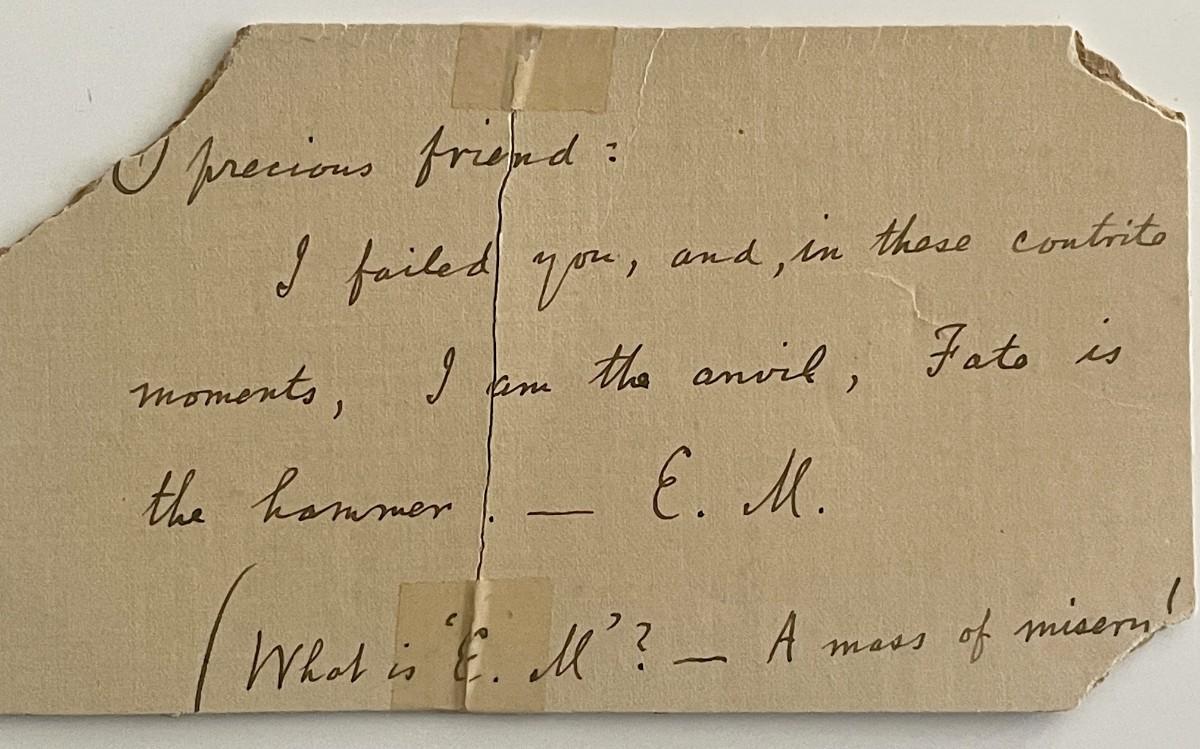 O precious friend:
I failed you, and, in these contrite
moments, I am the anvil, Fate is
the hammer. — E. M.
(What is 'E. M'? — A mass of misery!